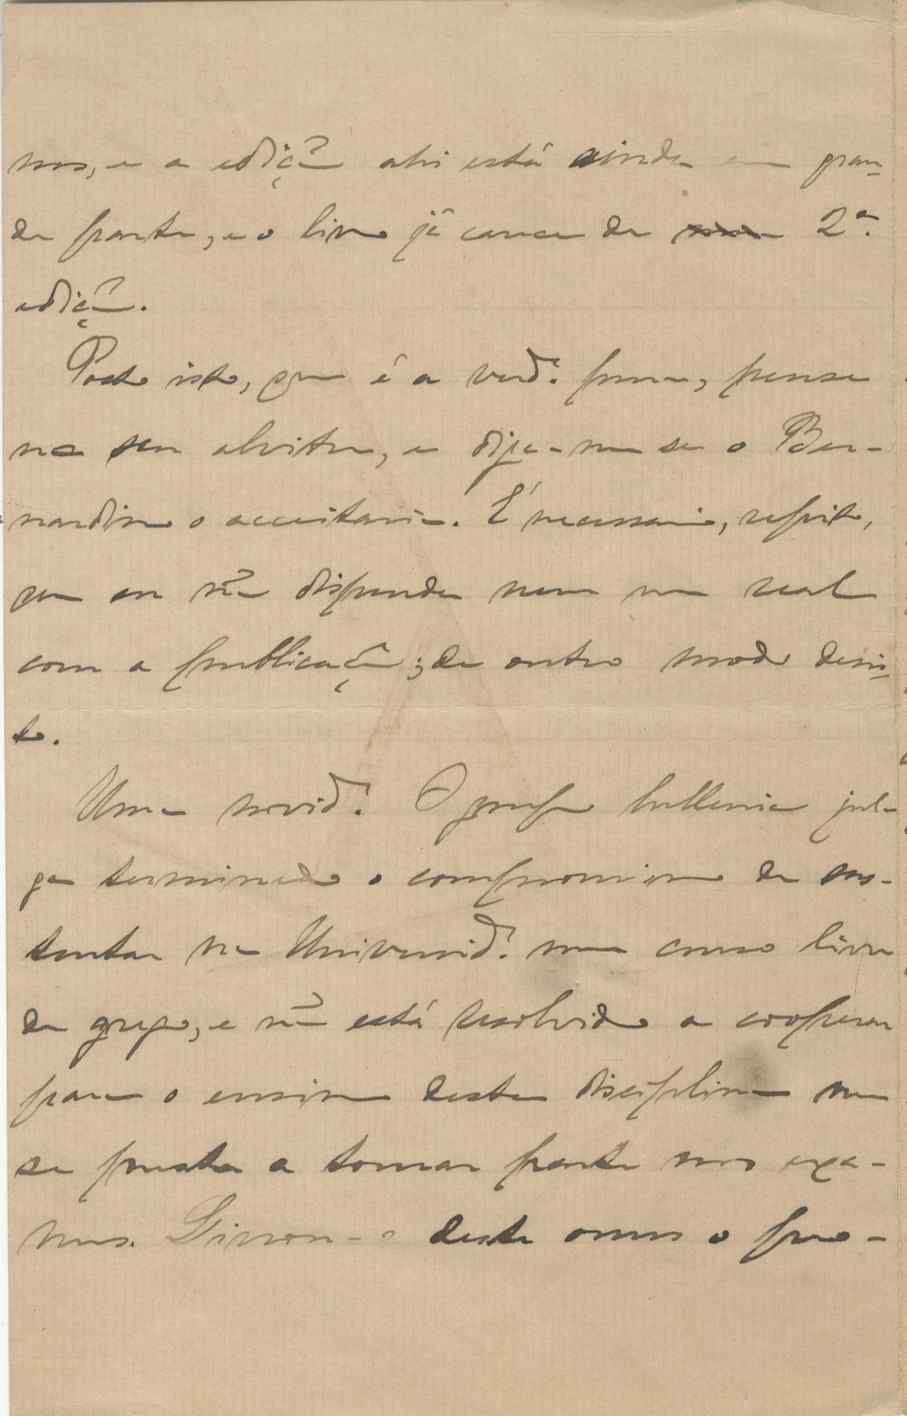 nos, e a edição ahi está ainda em gran-
de parte, e o livro já carece de 2ª.
edição.
Posto isto, que é a verd.e pura, pense
no seu alvitre, e diga-me se o Ber-
nardino o acceitaria. É necessario, repito,
que eu não dispenda nem um real
com a publicação; de outro modo desis-
to.
Uma novid.e! O prof. helleniʃta jul-
ga terminado o compromisso de sus-
tentar na Universid.e um curso livre
de grego, e não está resolvido a cooperar
para o ensino desta disciplina nem
se presta a tomar parte nos exa-
mes. Livrou-o deste onus o pro-